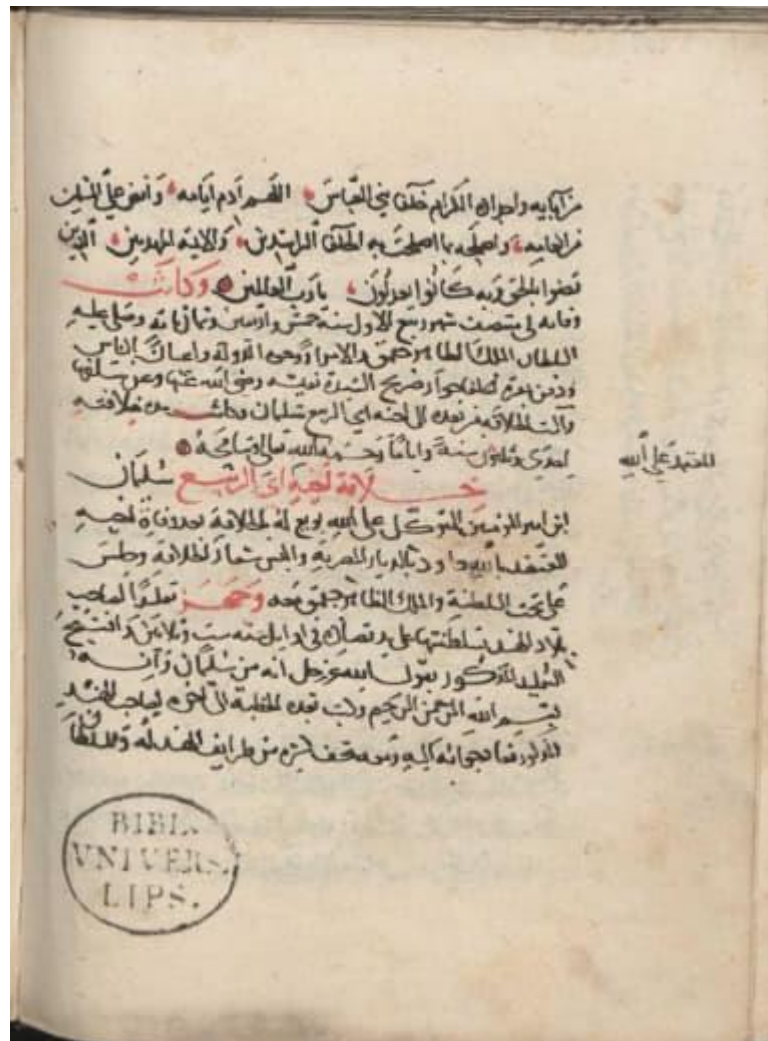 من آبائه واجداده الكرام خلفا بني العباس اللهم ادم ايامه وانعم على المسلمين
من انعامه واصلحه بما اصلحت به الخلفا الراشدين والايمة المهديين الذين
قضوا بالحق وبه كانوا يعدلون يا رب العالمين وكانت
وفاته في منتصف شهر ربيع الاول سنة خمس واربعين وثمان مائة وصلى عليه
السلطان الملك الظاهر جقمق والامرا ووجوه الدولة واعيان الناس
ودفن بضريح السيدة نفيسة رضي الله عنها وعن سلفها
وآلت الخلافة من بعده الى اخيه ابي الربيع سليمان وكانت مدة خلافته
احدى وثلثين سنة واياما رحمه الله تعالى
المعتمد على الله
خلافة اخيه ابي الربيع سليمان
ابن امير المومنين المتوكل على الله بويع له بالخلافة بعد وفاة اخيه
المعتضد بالله داود بالديار المصرية والبس شعار الخلافة وجلس
على تخت السلطنة والملك الظاهر جقمق معه وجهز تقليدا لصاحب
بلاد الهند بسلطنتها على يد في اوايل سنة ست وثلاثين وافتتح
التقليد المذكور بقول الله عز وجل انه من سليمان وانه
بسم الله الرحمن الرحيم بعده الخطبة الى اخره لصاحب الهند
المذكور اليه ومعه تحف كثيرة من طرايف الهند له وللسلطان
BIBL.
VNIVERS.
LIPS.